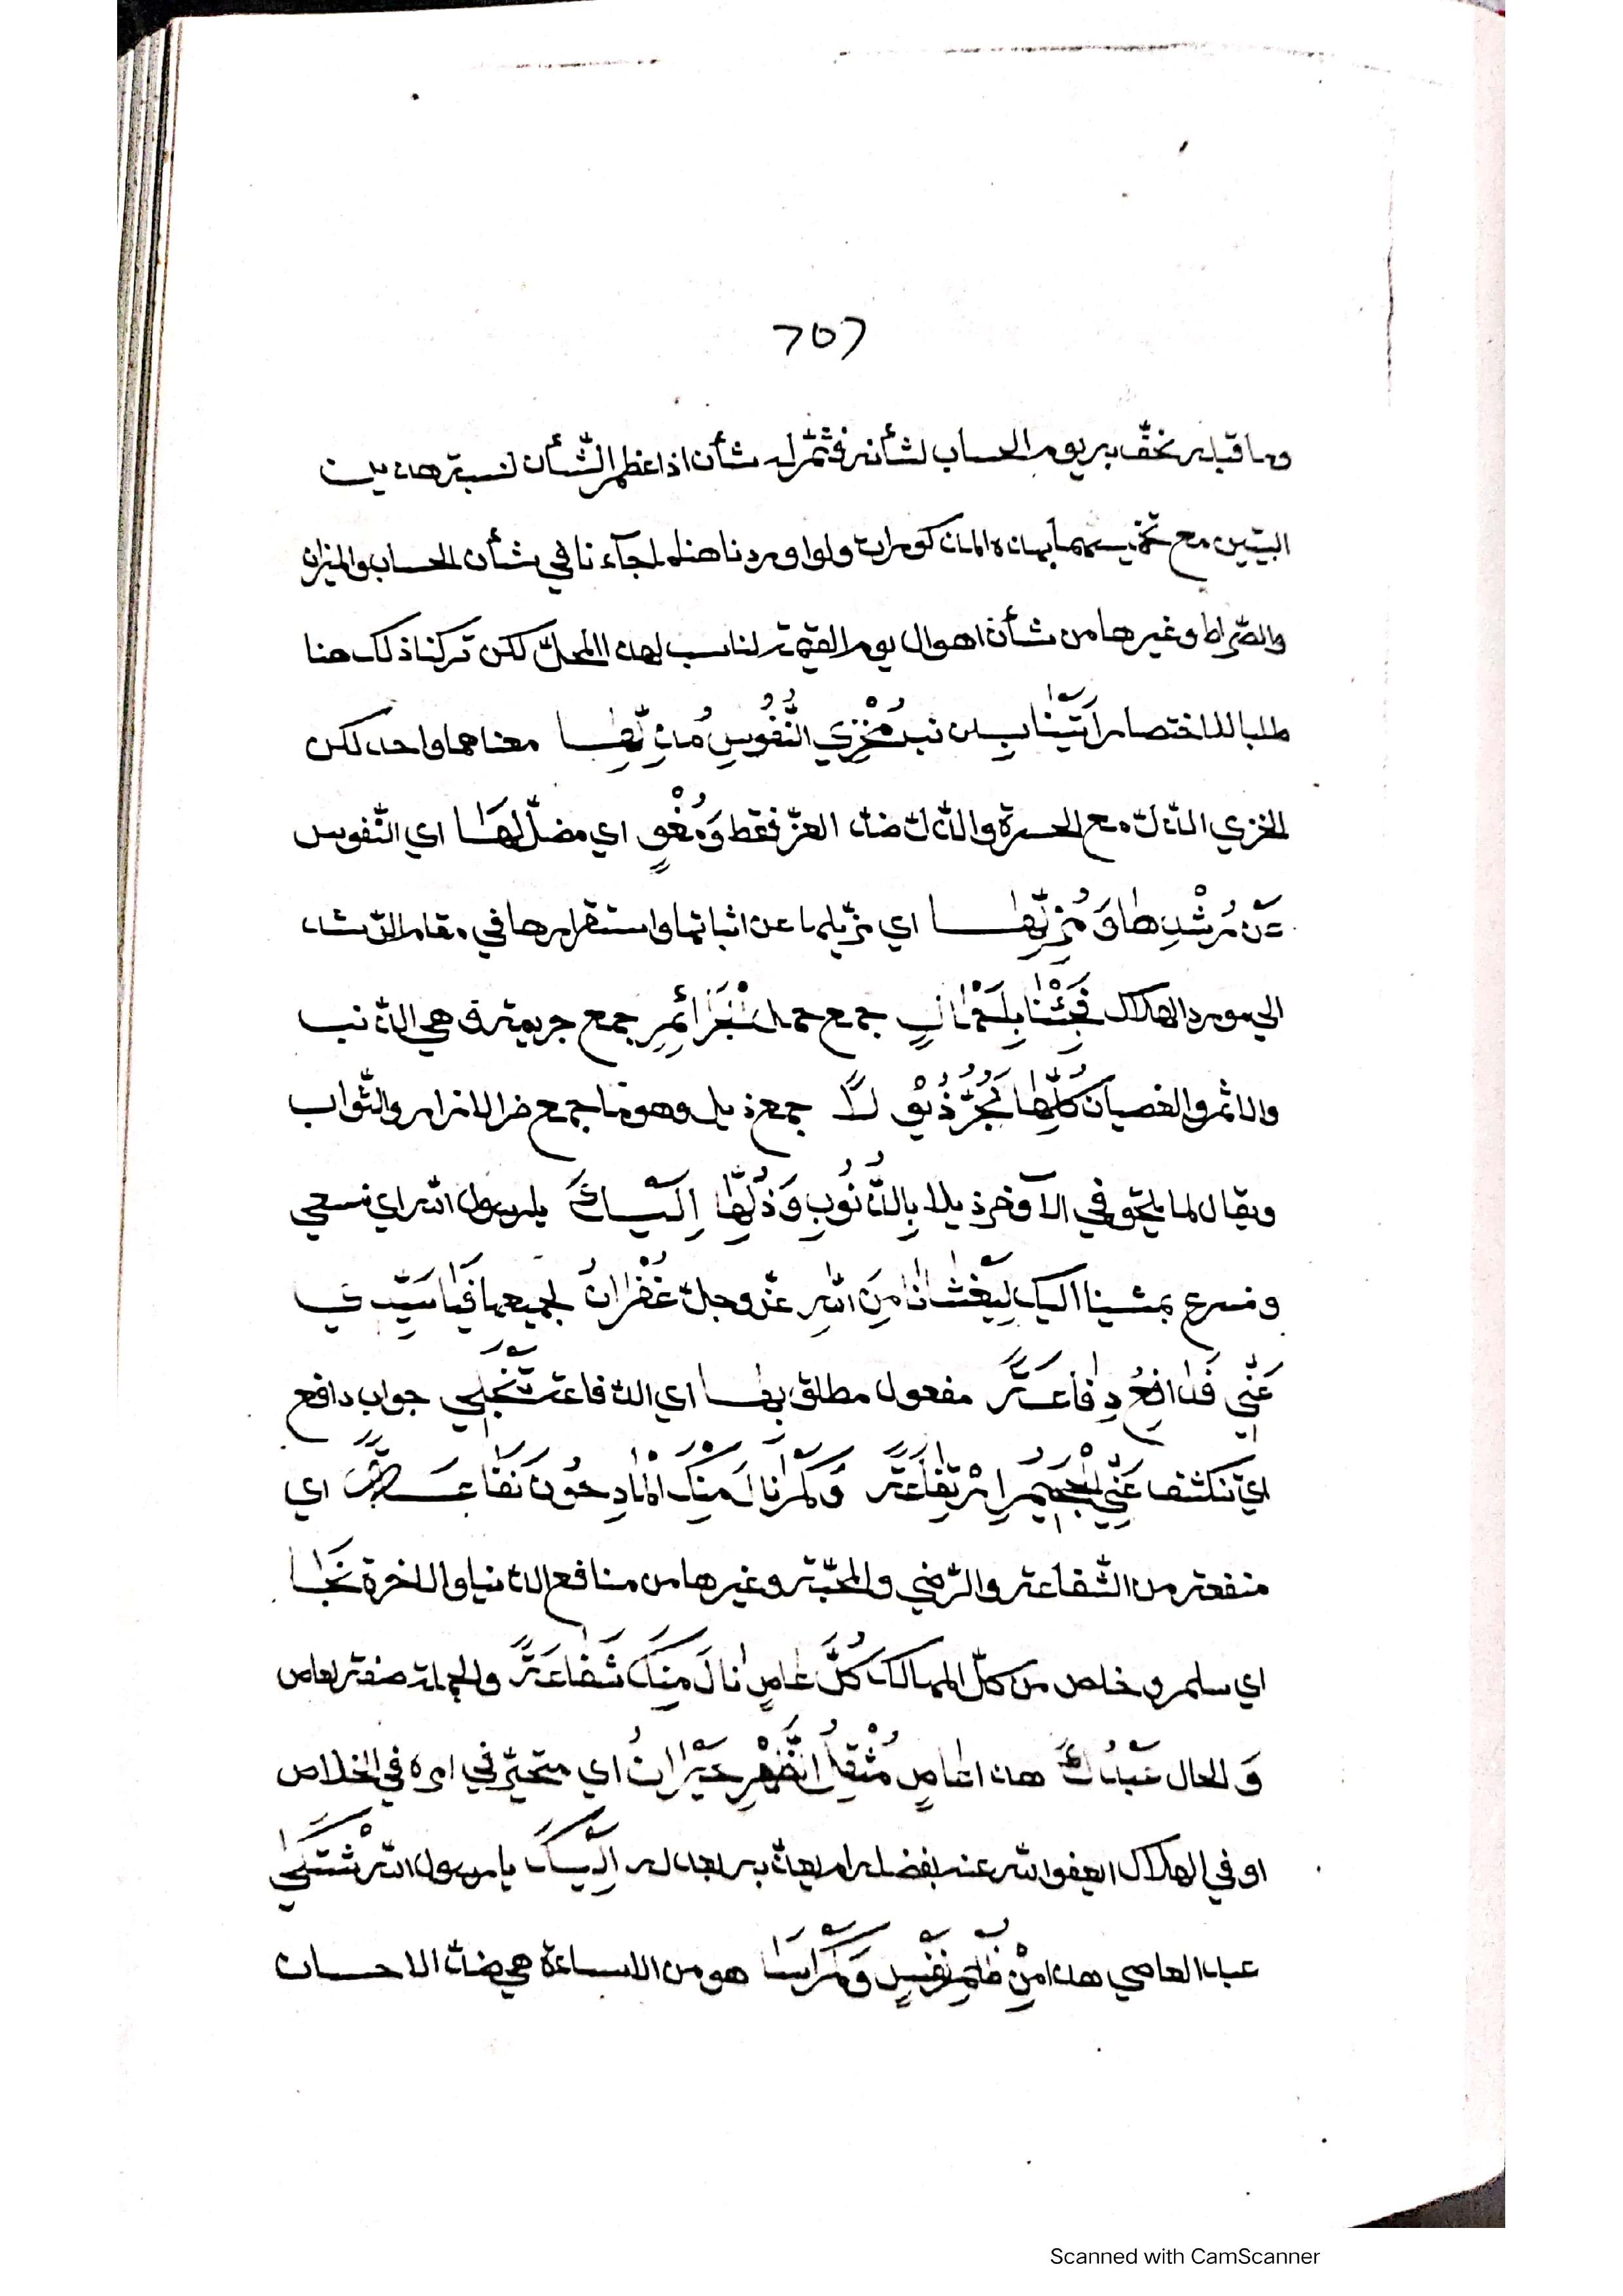 ٦٥٦
وما قبله نخفّ به يوم الحساب لشأنه فثمّ له شأن اذا عظم الشّأن لنسبة هذين
البيتين مع تخميسهما بهذه المذكورات ولو اوردنا هذا لجآءنا في شأن الحساب والميزان
والصّراط وغيرها من شأن اهوال يوم القيمة لناسب لهذا المحلّ لكن تركنا ذلك هنا
طلبا للاختصار اَتَيْنَا بِذَنبٍ مُخْزِي النُّفُوسِ مُذِلِّهَا معناهما واحد لكن
الخزي الذّلّ مع الحسرة والذّلّ ضدّ العزّ فقط وَمُغْوٍ اي مضلّ لَهَا اي النّفوس
عَن مُرْشِدِهَا وَمُزِلِّهَا اي مزيلها عن اثباتها واستقرارها في مقام الرّشد
الي مورد الهلاك فَجِئْنَا بِاَحْمَالِ جمع حمل الْجَرَائِمِ جمع جريمة وهي الذّنب
والاثم والعصيان كُلِّهَا نَجُرُّ ذُيُولًا جمع ذيل وهو ما جمع ضرّ الازار والثّواب
ويقال لما يلحق في الآخر ذيلا بِالذُّنُوبِ وَذُلِّهَا اِلَيْكَ يا رسول الله اي نسعي
ونسرع بمشينا اليك لِيَغْشَانَا مِنَ اللهِ عزّ وجلّ غُفْرَانُ لجميعها فَيَا سَيِّدِي
عَنِّي فَدَافِعْ دِفَاعَةً مفعول مطلق بِهَا اي الدّفاعة تَنْجَلِي جواب دافع
اي تنكشف عَنِّي الْجَحِيمُ ارْتِفَاعَةً وَكَمْ نَالَ مِنْكَ الْمَادِحُونَ نَفَاعَةً اي
منفعة من الشّفاعة والرّضي والمحبّة وغيرها من منافع الدّنيا والاخرة نَجَا
اي سلم وخلص من كلّ المهالك كُلُّ عَاصٍ نَالَ مِنكَ شَفَاعَةً والجملة صفة لعاص
وَ الحال عَبْدُكَ هذا العاصِ مُثْقَلُ الظَّهْرِ حَيْرَانُ اي متحيّر في امره في الخلاص
او في الهلاك ايعفو الله عنه بفضله ام يعذّبه بعدله اِلَيْكَ يا رسول الله شْتَكَي
عبدك العاصي هذا مِنْ ظُلْمِ نَفْسٍ وَكَمْ اَسَا هو من الاساءة هي ضدّ الاحسان
Scanned with CamScanner